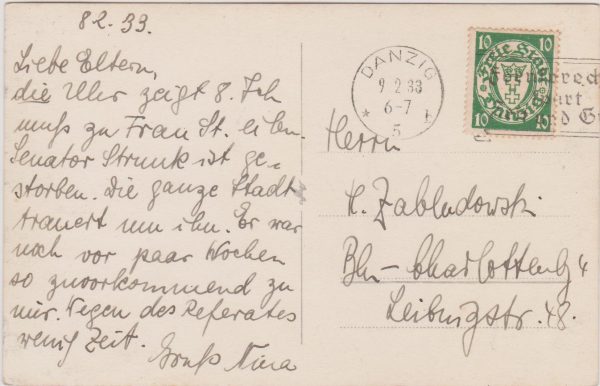 8 2. 33.
Liebe Eltern,
die Uhr zeigt 8. Ich
muß zu Frau St.
Senator Strunk ist ge-
storben. Die ganze Stadt
trauert um ihn. Er war
noch vor paar Wochen
so zuvorkommend zu
mir. Wegen des Referates
wenig Zeit.
Gruß Nina
DANZIG
9 2 33
6-7
* 5
10 10
Freie Stadt
Danzig
10 10
Herrn
Zabludowski
Bln - Charlottenbg 4
Leibnizstr. 48.